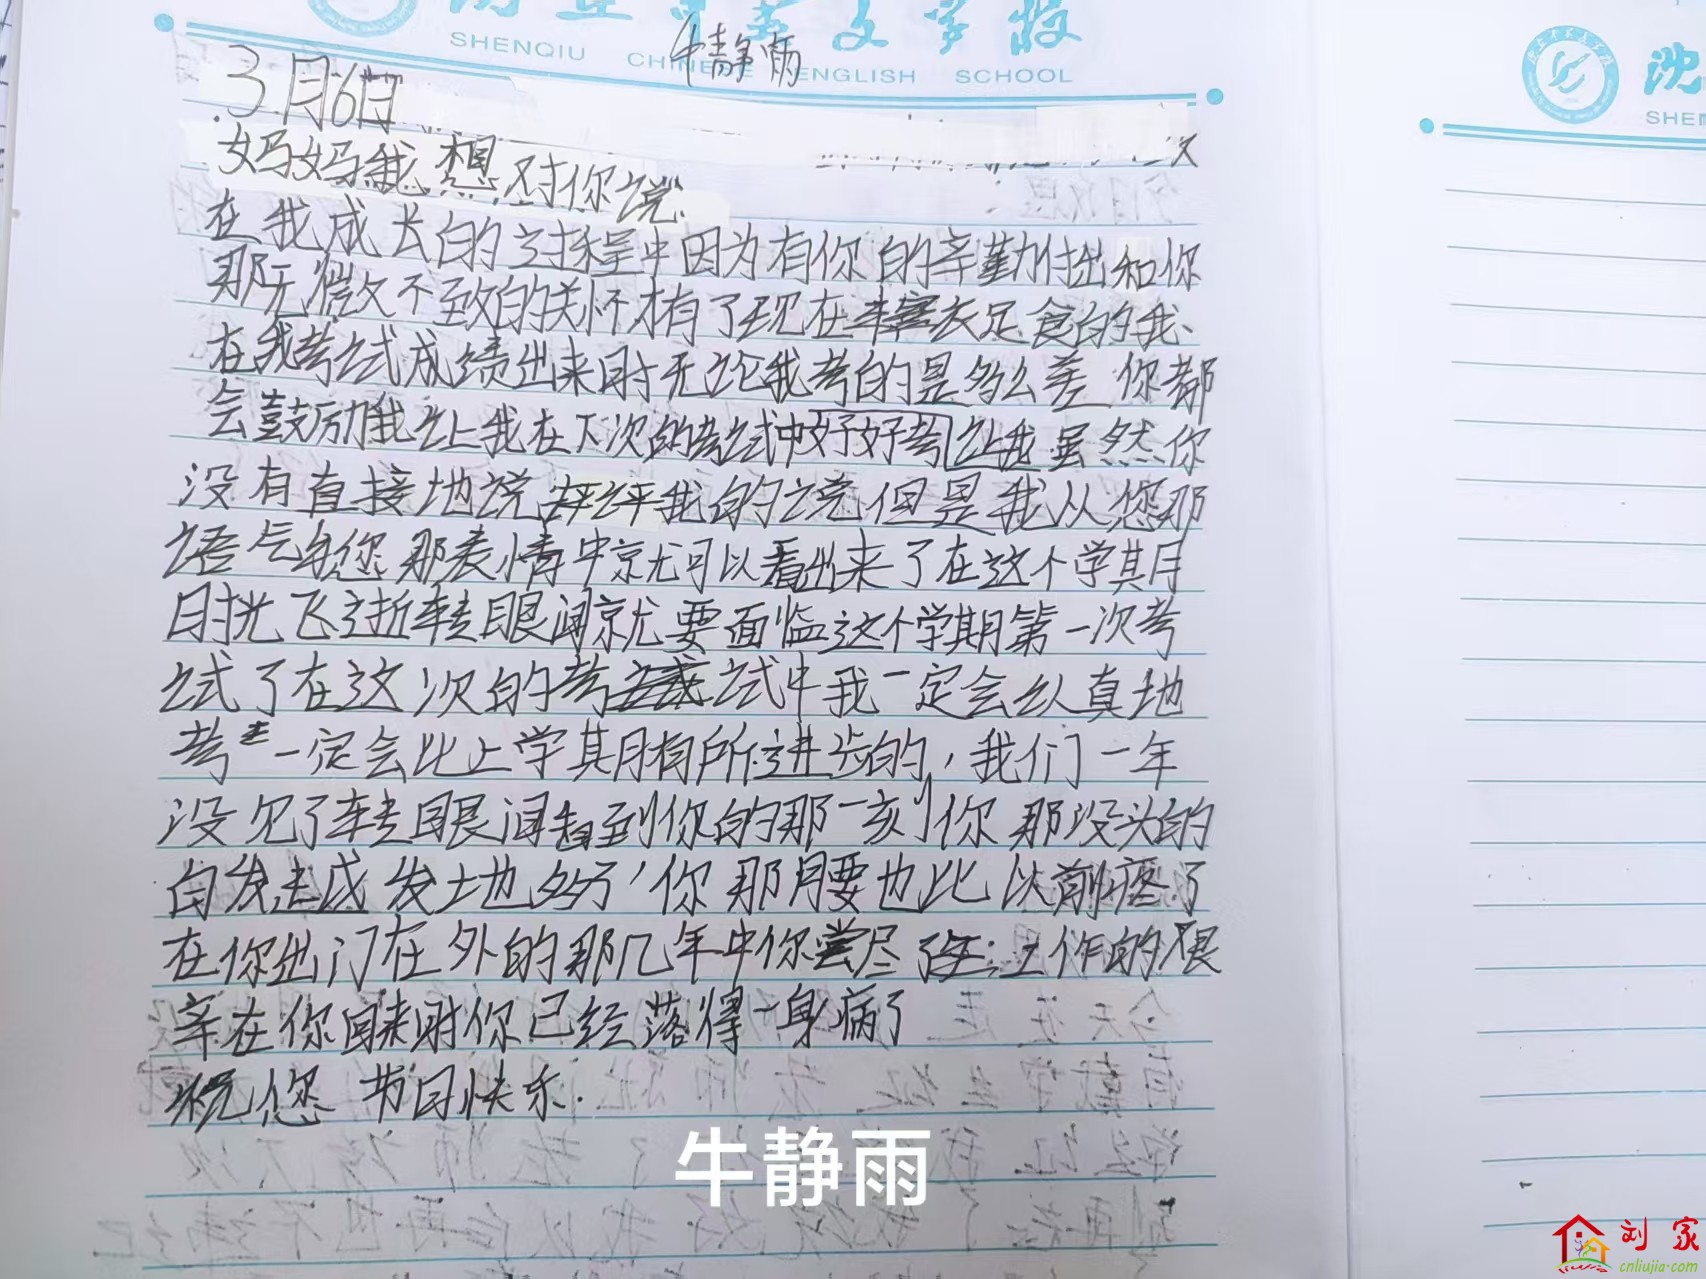 SHENQIU CHINESE ENGLISH SCHOOL
牛静雨
3月6日
妈妈我想对你说
在我成长的过程中因为有你的辛勤付出和你
那无微不致的关怀才有了现在丰衣足食的我、
在我考试成绩出来时无论我考的是多么差 你都
会鼓励我让我在下次的考试中好好考让我虽然你
没有直接地说 我的说但是我从您那
语气和您那表情中就可以看出来了在这个学期
时光飞逝转眼间就要面临这个学期第一次考
试了在这次的考试中我一定会认真地
考 一定会比上学期有所进步的，我们一年
没见了转眼间看到你的那一刻你那没头的
白发 发土地多了，你那腰也比以前疼了
在你出门在外的那几年中你尝尽了 工作的艰
辛在你回来时你已经落得一身病了
祝您 节日快乐.
牛静雨
沈
SHEN
刘家
cnliujia.com